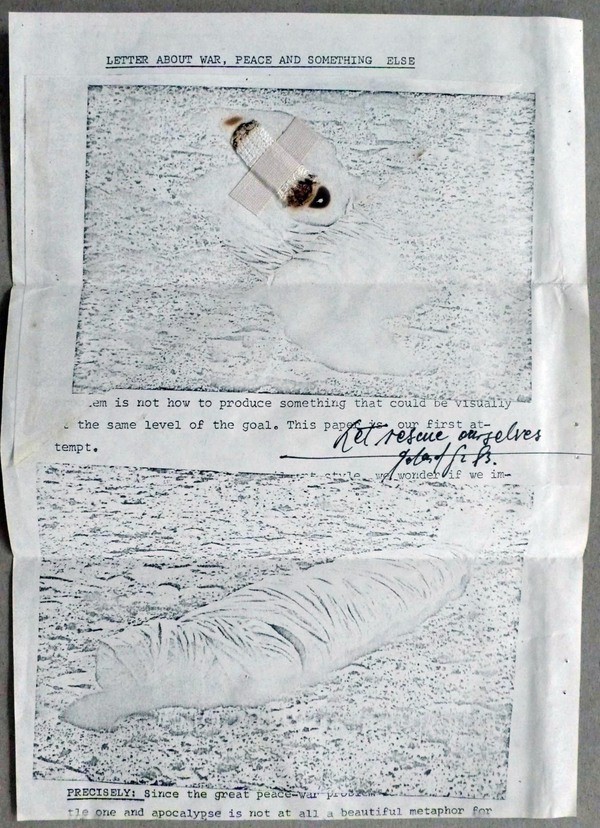 LETTER ABOUT WAR, PEACE AND SOMETHING ELSE
em is not how to produce something that could be visually
the same level of the goal. This paper is our first at-
Let rescue ourselves
tempt.
style, we wonder if we im-
PRECISELY: Since the great peace-war
tle one and apocalypse is not at all a beautiful metaphor for